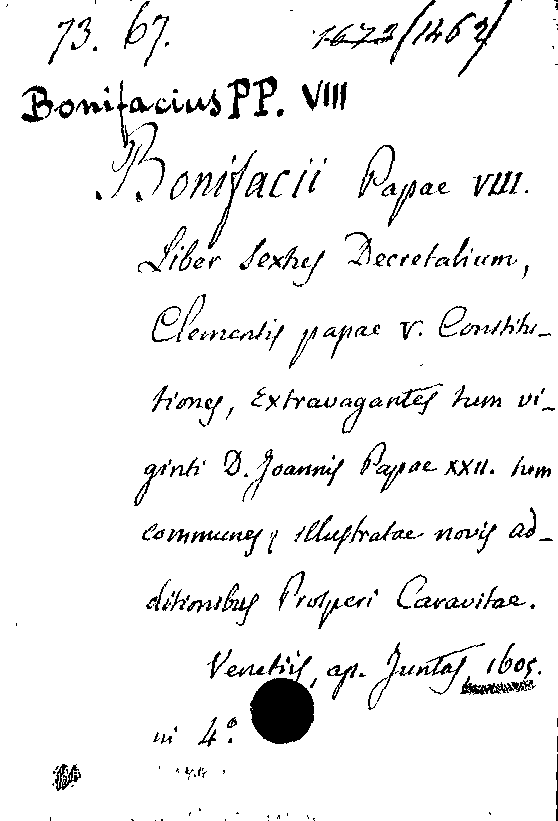 73. 67.
1673/1462/
Bonifacius PP. VIII
Bonifacii Papae VIII.
Liber Sextus Decretalium,
Clementis papae V. Constitu-
tiones, Extravagantes tum vi-
ginti D. Joannis Papae XXII. tum
communes; illustratae novis ad-
ditionibus Prosperi Caravitae.
Venetiis, ap. Juntas, 1605.
in 4º